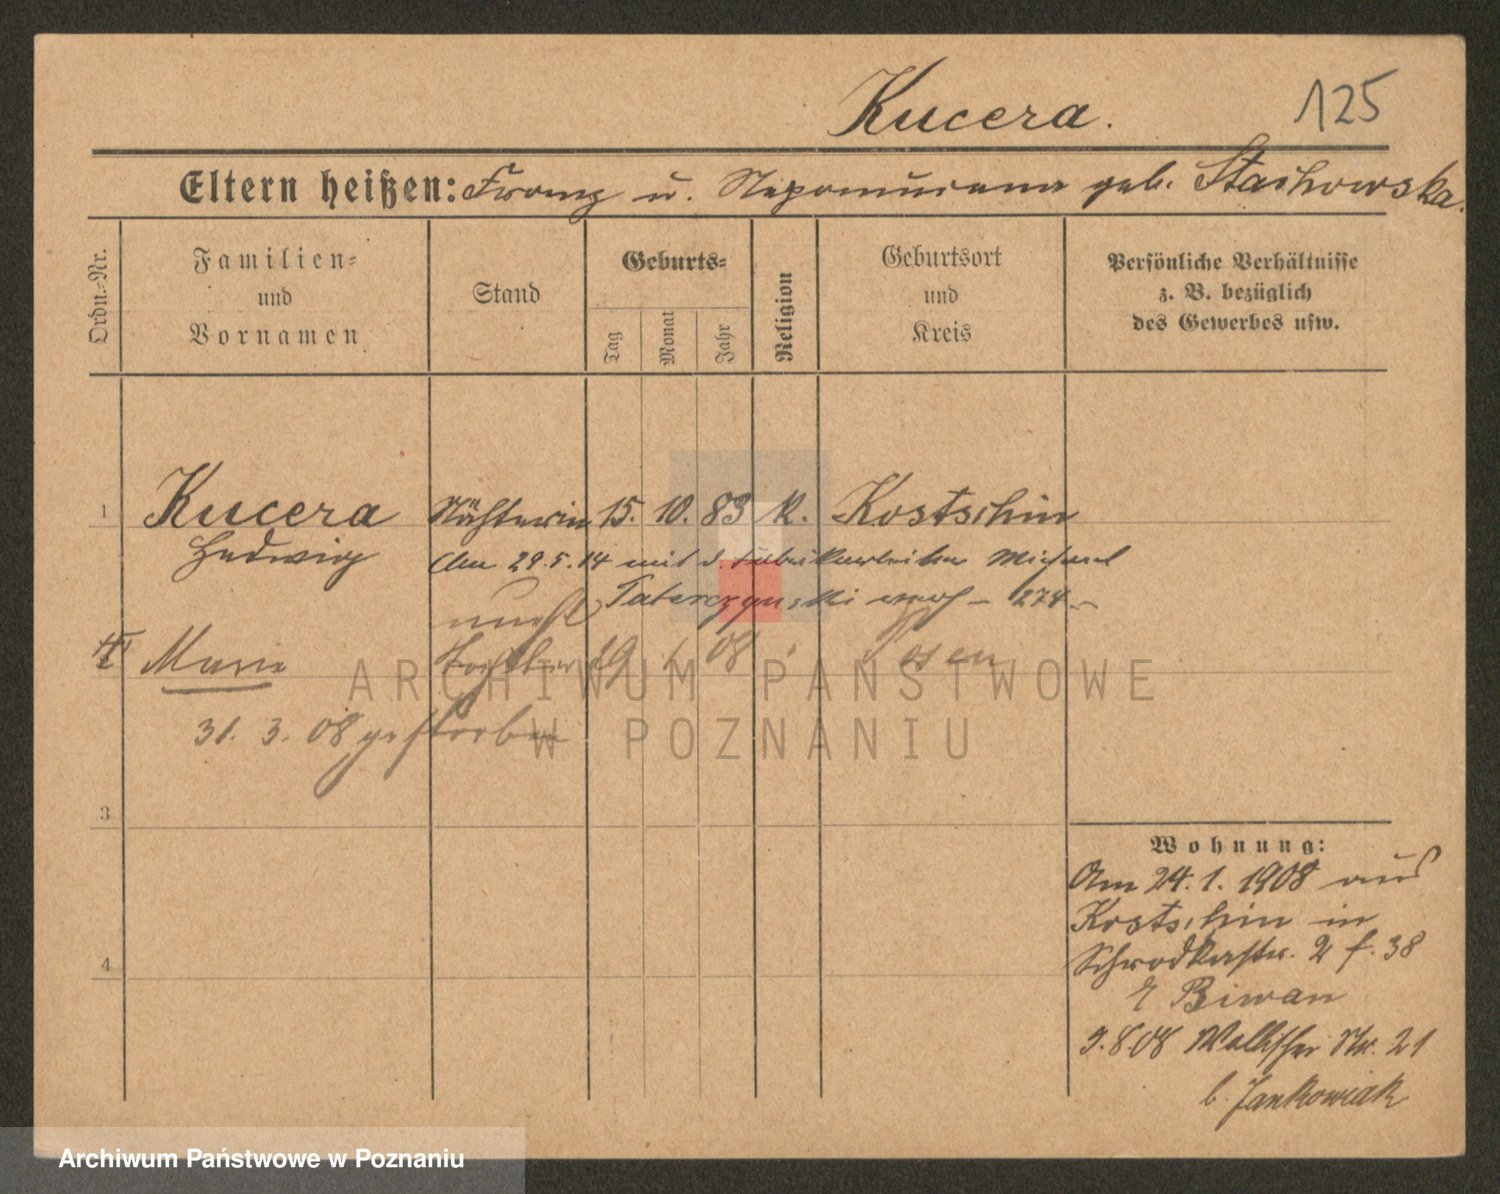 Kucera. 125
Eltern heißen: Franz u. Nepomucena geb. Stachowska.
Ordn.-Nr.
Familien-
und
Vornamen
Stand
Geburts-
Tag
Monat
Jahr
Religion
Geburtsort
und
Kreis
Persönliche Verhältnisse
z. B. bezüglich
des Gewerbes usw.
1 Kucera Nähterin 15. 10. 83 k. Kostschin
Hedwig
Am 29.5.14 mit d. Fabrikarbeiter Michael
unehl Tatarczynski verh - 274
Marie Tochter 19 1 08 Posen
31. 3. 08 gestorben
3
4
Wohnung:
Am 24. 1. 1908 aus
Kostschin in
Schrodkastr. 2 f. 38
Biwan
9.8.08 Wallischei Str. 21
b. Jankowiak
ARCHIWUM PAŃSTWOWE
W POZNANIU
Archiwum Państwowe w Poznaniu